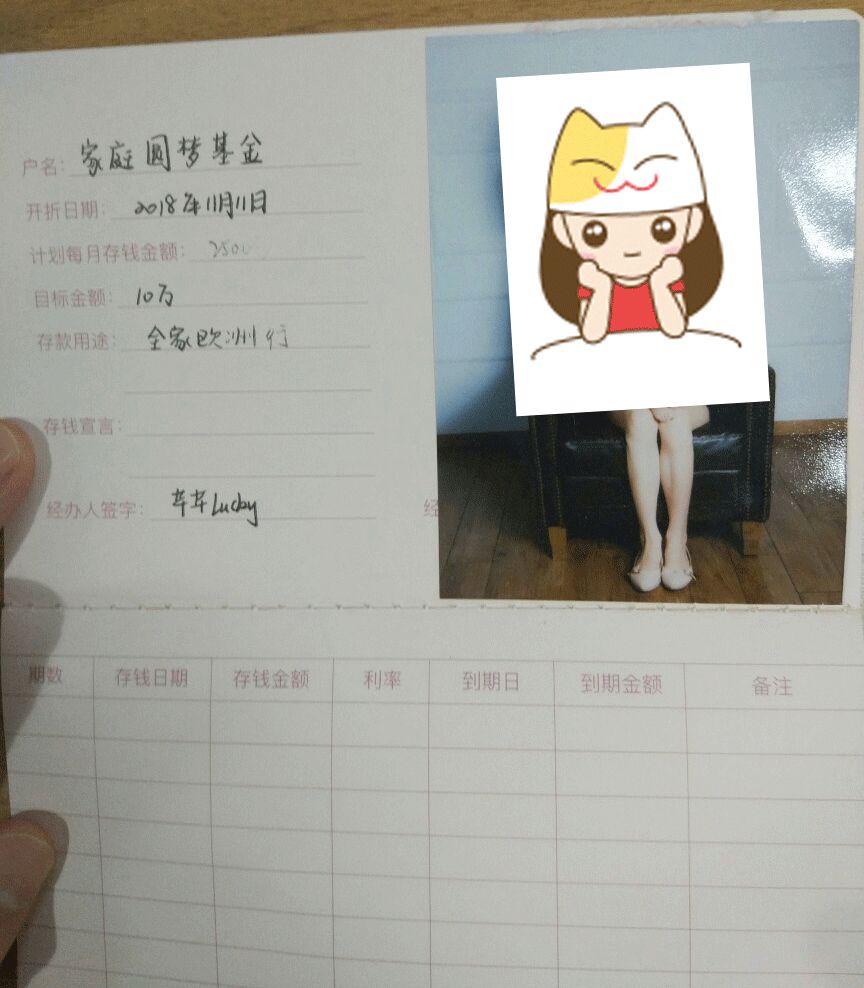 户名：家庭圆梦基金
开折日期：2018年11月11日
计划每月存钱金额：2500
目标金额：10万
存款用途：全家欧洲行
存钱宣言：
经办人签字：芊芊Lucky
经
期数 存钱日期 存钱金额 利率 到期日 到期金额 备注